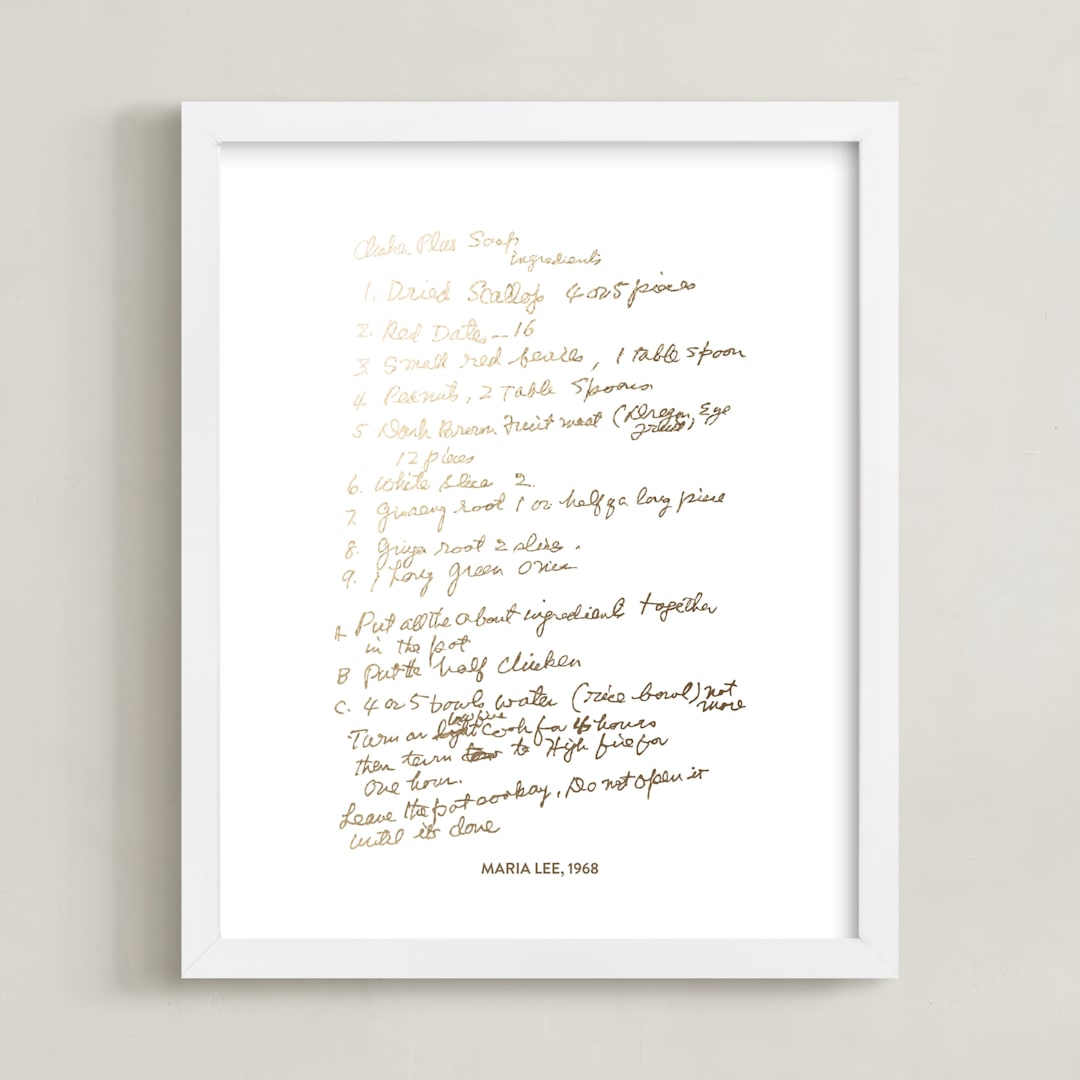 Plus Soup
ingredients
1. Dried Scallop 4 or 5 pieces
2. Red Dates - 16
3 Small red beans, 1 table spoon
4 Peanuts, 2 Table Spoons
5 Dark Brown Fruit meat (Dragon Eye
fruit)
12 pieces
6. White slice 2.
7. Ginseng root 1 or half of a long piece
8. Ginger root 2 slices.
9. 1 Long green Onion
A Put all the about ingredients together
in the pot
B Put the half Chicken
C. 4 or 5 bowls water (rice bowl) not
more
low fire
Turn on light cook for 4 hours
then turn to High fire for
One hour.
Leave the pot Do not open it
until it's done
MARIA LEE, 1968